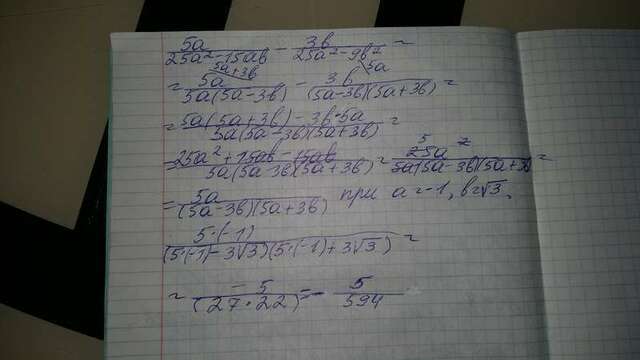 5a/(25a²-15ab) - 3b/(25a²-9b²) =
= 5a^(5a+3b)/(5a(5a-3b)) - 3b^(5a)/((5a-3b)(5a+3b)) =
= (5a(5a+3b)-3b·5a)/(5a(5a-3b)(5a+3b)) =
= (25a²+15ab-15ab)/(5a(5a-3b)(5a+3b)) = 25a²/(5a(5a-3b)(5a+3b)) =
= 5a/((5a-3b)(5a+3b)) при a=-1, b=√3.
5·(-1)/((5·(-1)-3√3)(5·(-1)+3√3)) =
= -5/(27·22) = -5/594